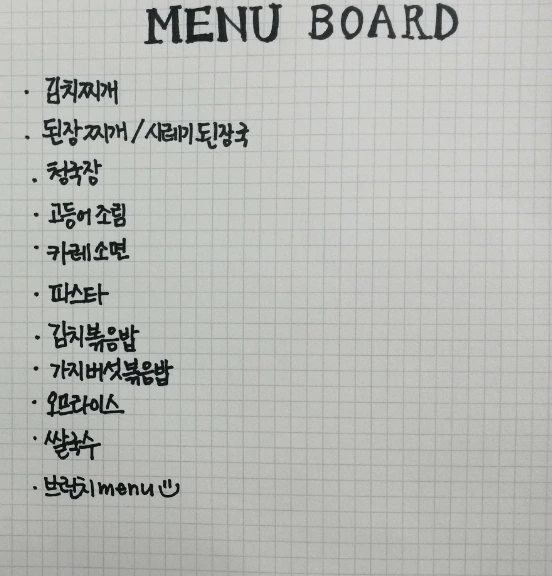 MENU BOARD
· 김치찌개
· 된장찌개/시레기된장국
· 청국장
· 고등어조림
· 카레소면
· 파스타
· 김치볶음밥
· 가지버섯볶음밥
· 오므라이스
· 쌀국수
· 브런치menu